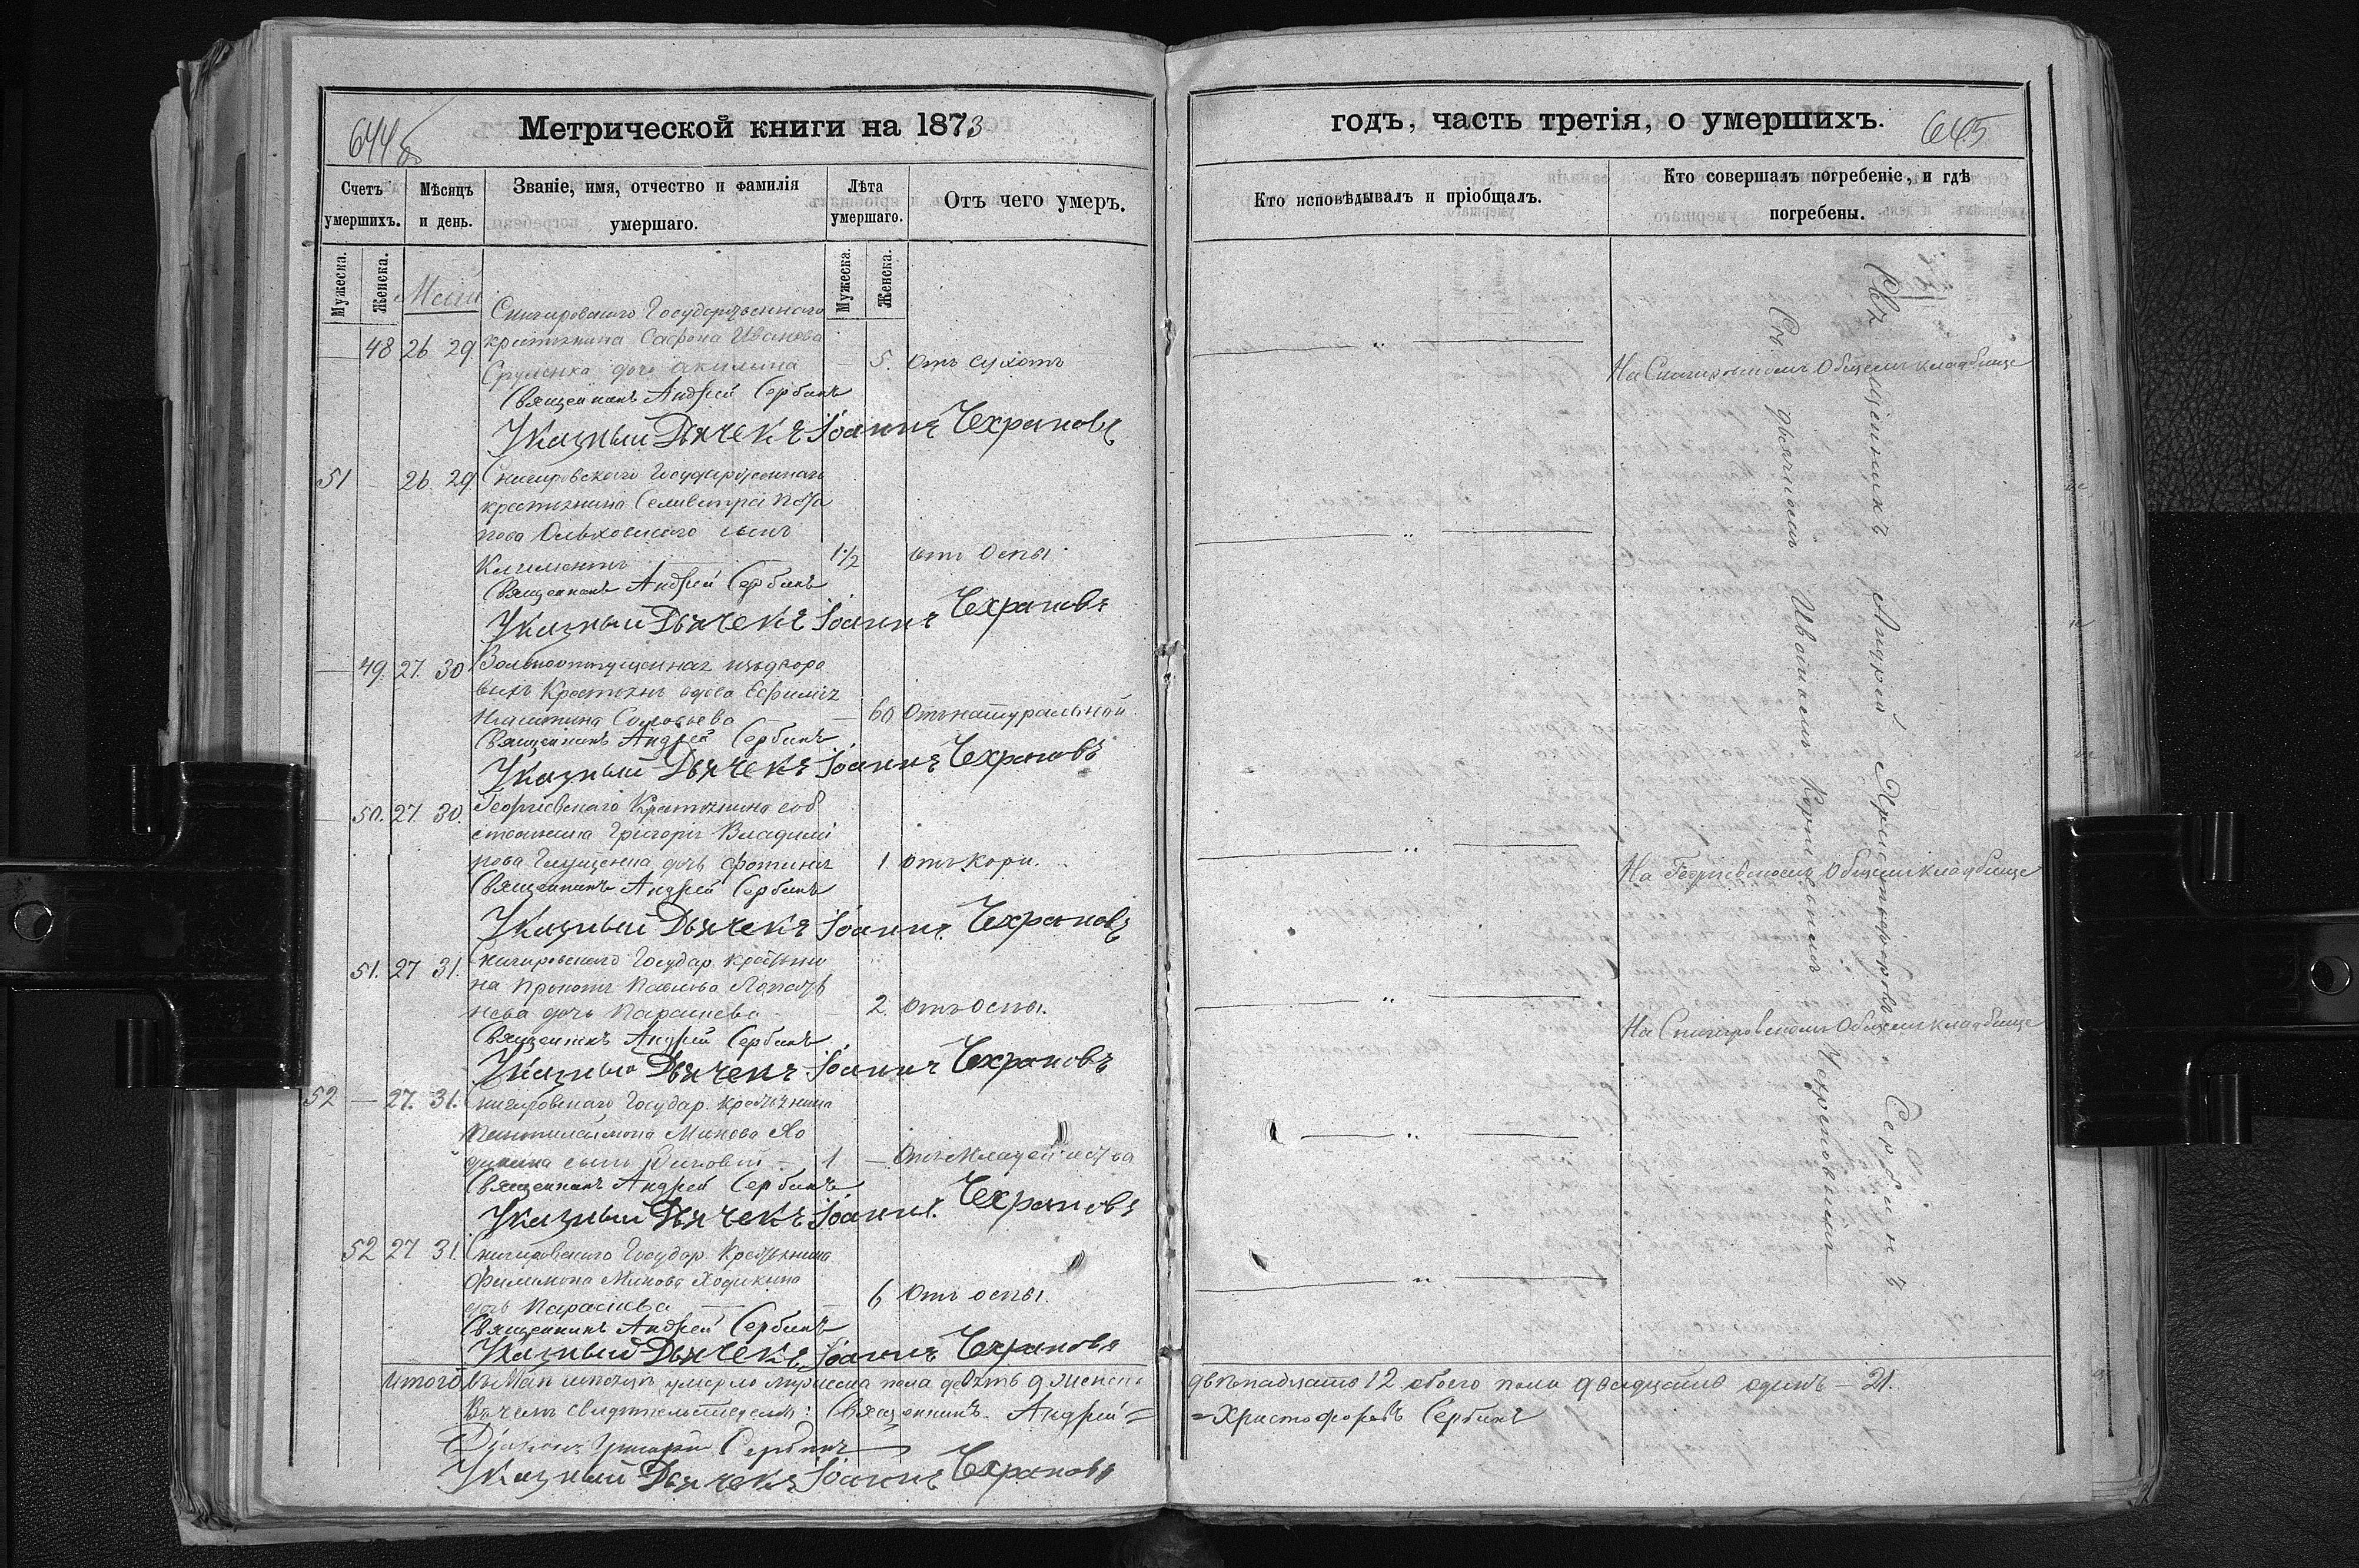 644б
Метрической книги на 1873
Счетъ умершихъ.
Мѣсяцъ и день.
Званіе, имя, отчество и фамилія умершаго.
Лѣта умершаго.
Отъ чего умеръ.
Мужеска.
Женска.
Мужеска.
Женска.
Май
Снигировскаго Государственнаго
48 26 29 крестьянина Сафона Иванова
дочь Акилина 5. отъ сухотъ
Священникъ Андрей Сербинъ
Указный Дьячекъ Іоаннъ Чехрановъ
51 26 29 Снигировскаго Государственнаго
крестьянина Селиверстра Пота
пова Ольховскаго сынъ
Климентъ 1 1/2 отъ Оспы
Священникъ Андрей Сербинъ
Указный Дьячекъ Іоаннъ Чехрановъ
49. 27. 30 Вольноотпущенная изъ дворо
выхъ Крестьянъ вдова Ефимія
Никитина Соловьева 60 Отъ натуральной
Священникъ Андрей Сербинъ
Указный Дьячекъ Іоаннъ Чехрановъ
50. 27. 30. Георгіевскаго Крестьянина соб
ственника Григорія Владимі
рова Глущенка дочь Фотинія 1. отъ кори.
Священникъ Андрей Сербинъ
Указный Дьячекъ Іоаннъ Чехрановъ
51. 27 31. Снигировскаго Государ. крестьяни
на Прокопія Павлова
дочь Параскева 2. отъ оспы.
Священникъ Андрей Сербинъ
Указный Дьячекъ Іоаннъ Чехрановъ
52 — 27. 31. Снигировскаго Государ. крестьянина
Пантилеимона Минова Хо
дикина сынъ 1 — Отъ младенчества
Священникъ Андрей Сербинъ
Указный Дьячекъ Іоаннъ Чехрановъ
52 27 31. Снигировскаго Государ. Крестьянина
Филимона Минова Ходикина
дочь Параскева 6 отъ оспы.
Священникъ Андрей Сербинъ
Указный Дьячекъ Іоаннъ Чехрановъ
Итого въ Маѣ мѣсяцѣ умерло мужеска пола девять 9 женска
Въ чемъ свидѣтельствуемъ: Священникъ Андрей =
Діаконъ Григорій Сербинъ
Указный Дьячекъ Іоаннъ Чехрановъ
годъ, часть третія, о умершихъ.
645
Кто исповѣдывалъ и пріобщалъ.
Кто совершалъ погребеніе, и гдѣ погребены.
На Снигировскомъ Общемъ кладбище
На Георгіевскомъ Общемъ кладбище
На Снигировскомъ Общемъ кладбище
Священникъ Андрей Христофоровъ Сербинъ
Съ дьячкомъ Иваномъ Корнильевымъ Чехрановымъ
двѣнадцать 12 обоего пола двадцать одинъ — 21.
= Христофоровъ Сербинъ